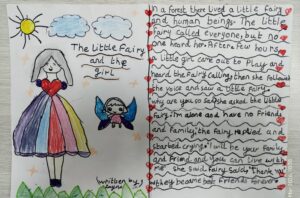 The Little Fairy
and the
girl
written by
In a forest there lived a little Fairy
and human beings. The little
fairy called everyone, but no
one heard her. After a few hours
a little girl came out to Play and
heard the Fairy calling, then she followed
the voice and saw a little Fairy
why are you so sad, she asked the little
Fairy. I'm alone and have no Friends
and Family, the fairy replied and
started crying. I will be your family
and Friend and You can live with
me she said. Fairy said, Thank
they became best Friends forever